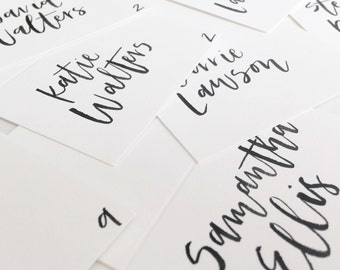 Walters
2
Katie
Walters
2
Lawson
9
Samantha
Ellis